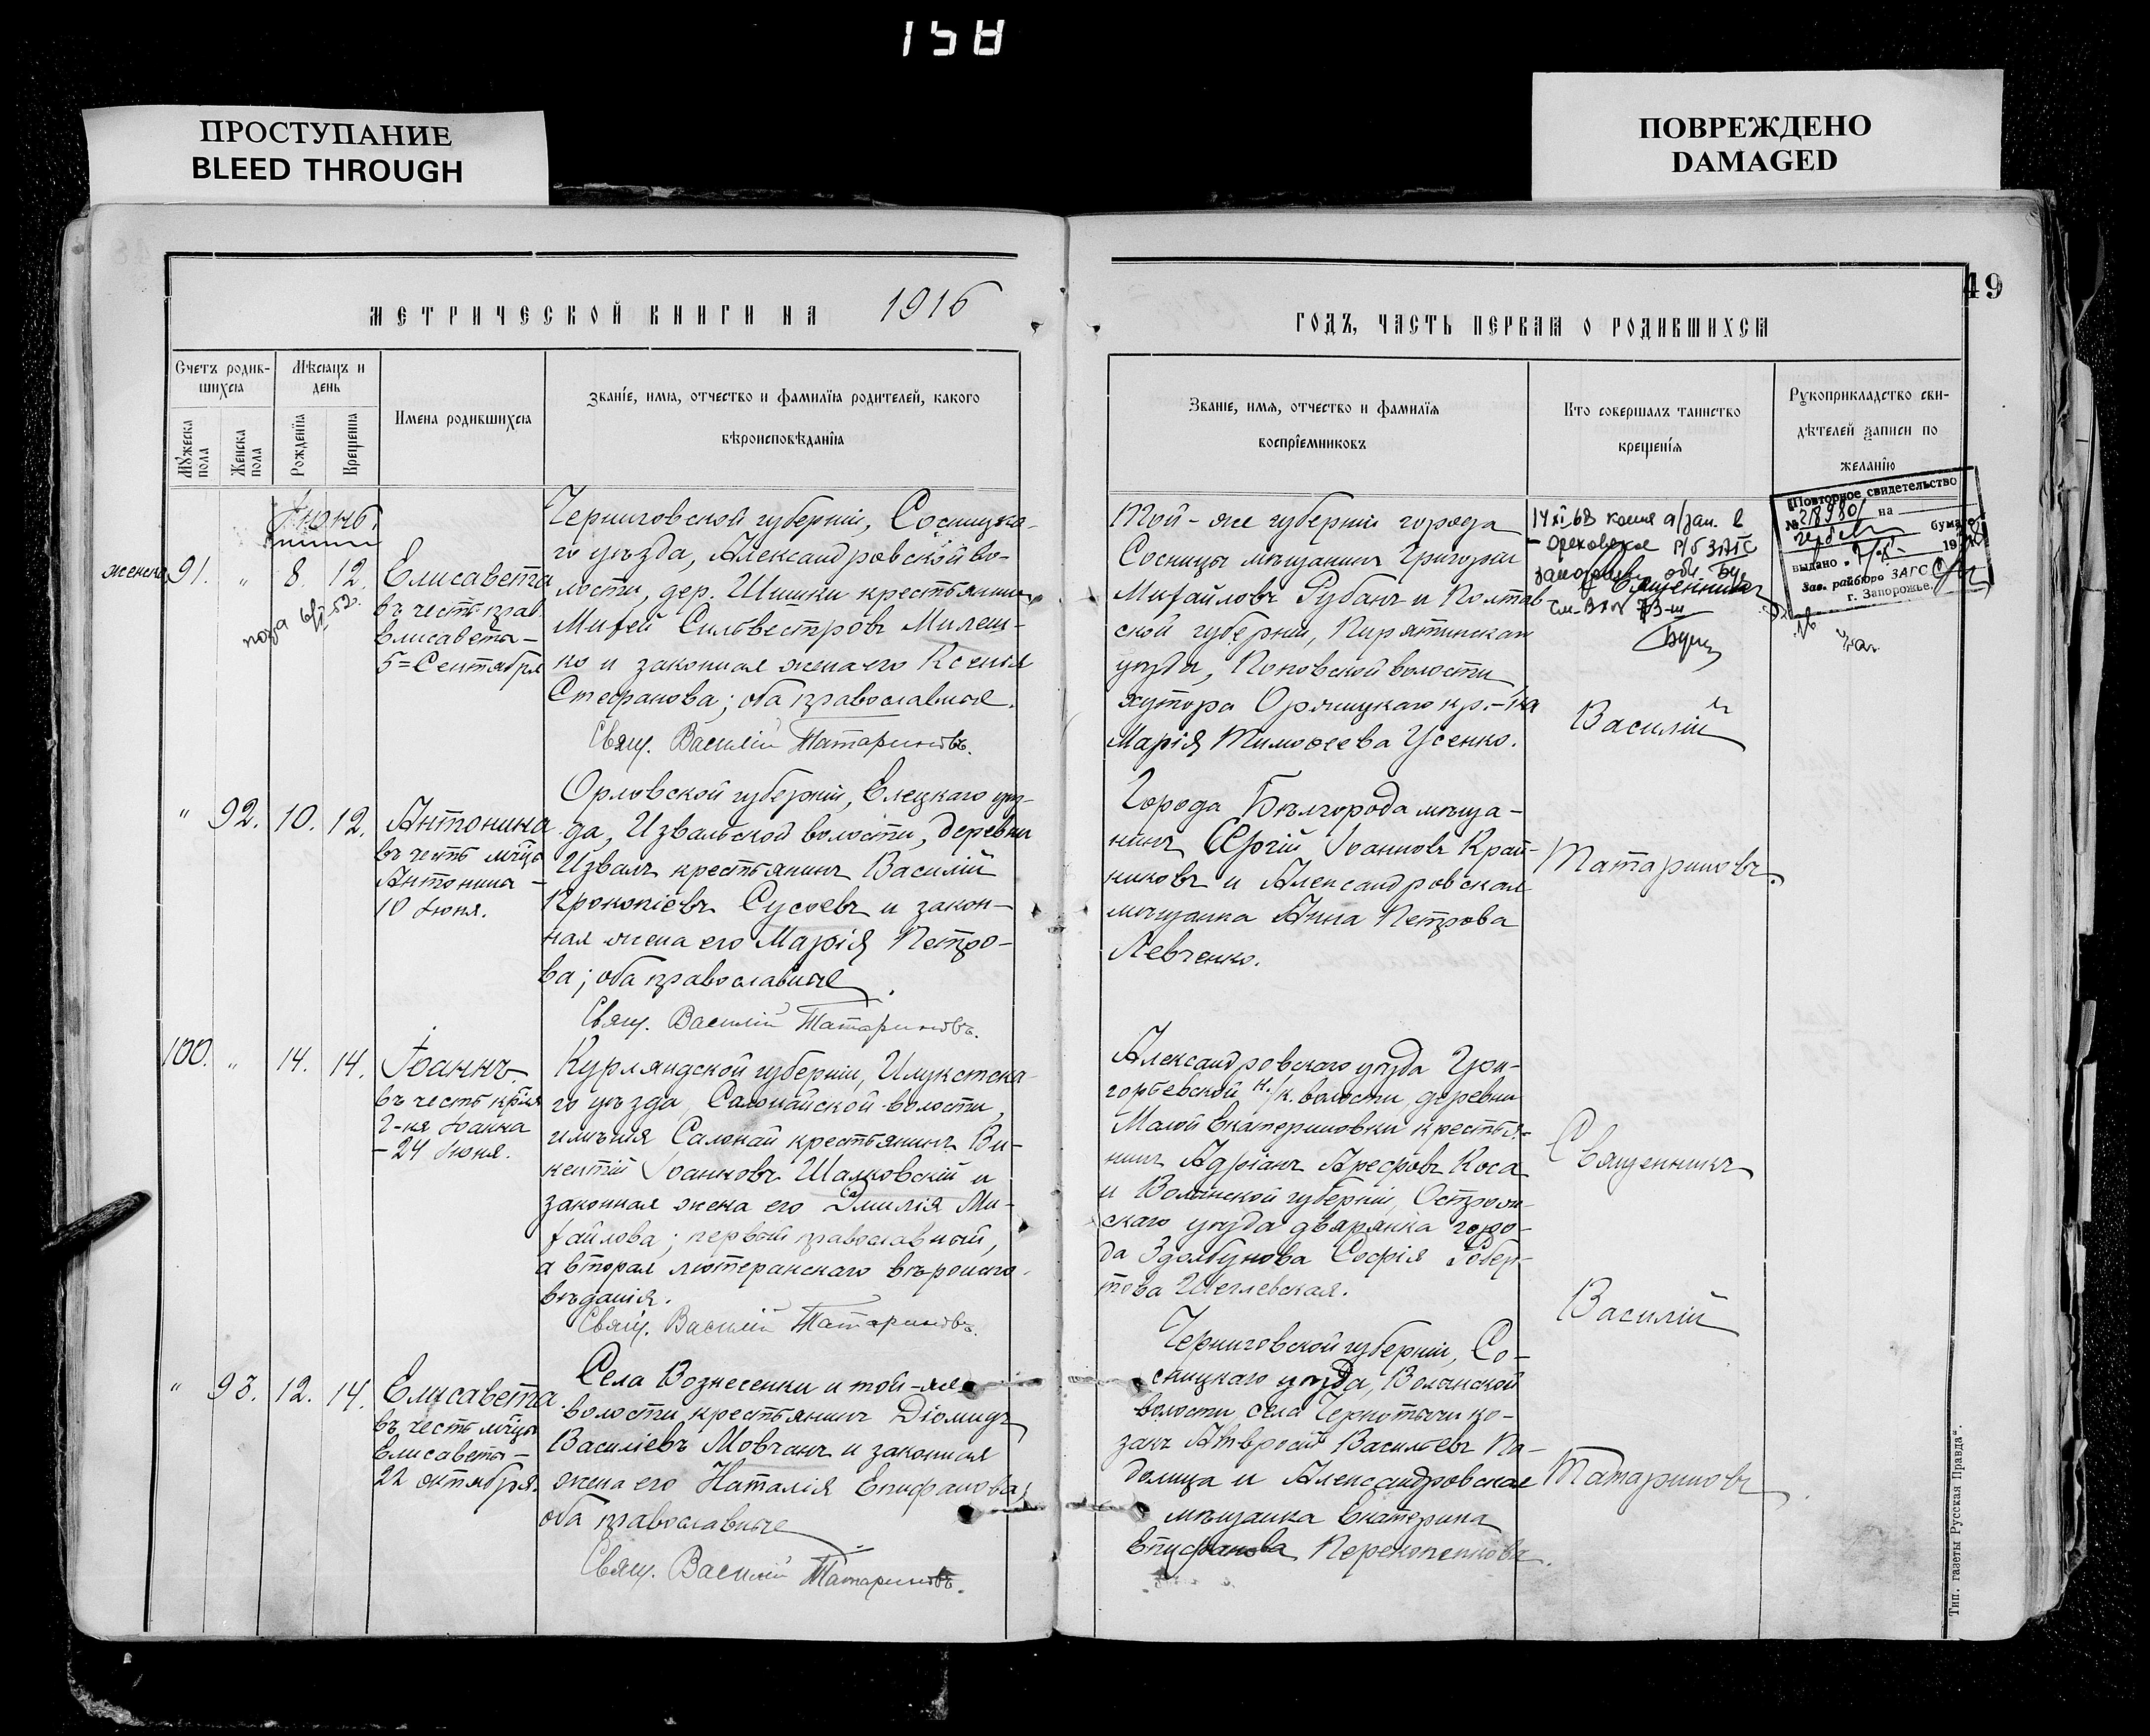 158
ПРОСТУПАНИЕ
BLEED THROUGH
ПОВРЕЖДЕНО
DAMAGED
49
МЕТРИЧЕСКОЙ КНИГИ НА 1916
ГОДЪ, ЧАСТЬ ПЕРВАЯ О РОДИВШИХСЯ
Счетъ родив-
шихся
Мужеска пола
Женска пола
Мѣсяцъ и
день
Рожденія
Крещенія
Имена родившихся
Званіе, имя, отчество и фамилія родителей, какого
вѣроисповѣданія
Званіе, имя, отчество и фамилія
воспріемниковъ
Кто совершалъ таинство
крещенія
Рукоприкладство сви-
дѣтелей записи по
желанію
Іюнь.
женска 91. " 8. 12.
Елисавета
въ честь прав.
Елисаветы –
5 = Сентября
Черниговской губерніи, Сосницка-
го уѣзда, Александровской во-
лости, дер. Шишки крестьянинъ
Михей Сильвестровъ Милеш-
ко и законная жена его Ксенія
Стефанова; оба православные.
Свящ. Василій Татариновъ.
Той-же губерніи города
Сосницы мѣщанинъ Григорій
Михайловъ Рубанъ и Полтав-
ской губерніи, Пирятинскаго
уѣзда, Поповской волости
хутора Оржицкаго кр.-ка
Марія Тимоѳеева Усенко.
14 XI 63 копия а/зап. в
Ореховское р/б ЗАГС
Священникъ
Василій
Повторное свидетельство
№ 218980 на
бумаге
выдано
Зав. райбюро ЗАГС
г. Запорожье.
" 92. 10. 12.
Антонина
въ честь мч҃цы
Антонины –
10 Іюня.
Орловской губерніи, Елецкаго уѣз-
да, Извальской волости, деревни
Извалъ крестьянинъ Василій
Прокопіевъ Сусоевъ и закон-
ная жена его Марія Петро-
ва; оба православные.
Свящ. Василій Татариновъ.
Города Бѣлгорода мѣща-
нинъ Сергій Іоанновъ Край-
никовъ и Александровская
мѣщанка Анна Петрова
Левченко.
Татариновъ.
100. " 14. 14.
Іоаннъ
въ честь кр҃тля
Г-ня Іоанна
– 24 Іюня.
Курляндской губерніи, Илукстска-
го уѣзда, Салонайской волости,
имѣнія Салонай крестьянинъ Ви-
кентій Іоанновъ Шалковскій и
законная жена его Эмилія Ми-
хайлова; первый православный,
а вторая лютеранскаго вѣроиспо-
вѣданія.
Свящ. Василій Татариновъ.
Александровскаго уѣзда Гри-
горьевской н./к. волости, деревни
Малой Екатериновки крестья-
нинъ Адріанъ Арефовъ Коса
и Волынской губерніи, Острож-
скаго уѣзда дворянка горо-
да Здолбунова Софія Робер-
това Шеглевская.
Священникъ
Василій
" 93. 12. 14.
Елисавета
въ честь мч҃цы
Елисаветы –
22 октября.
Села Вознесенки и той-же
волости крестьянинъ Діомидъ
Василіевъ Мовчанъ и законная
жена его Наталія Епифанова;
оба православные
Свящ. Василій Татариновъ.
Черниговской губерніи, Со-
сницкаго уѣзда, Волынской
волости, села Чернотычи ко-
закъ Амвросій Василіевъ По-
долица и Александровская
мѣщанка Екатерина
Епифанова Перекопенкова.
Татариновъ
Тип. газеты „Русская Правда“.